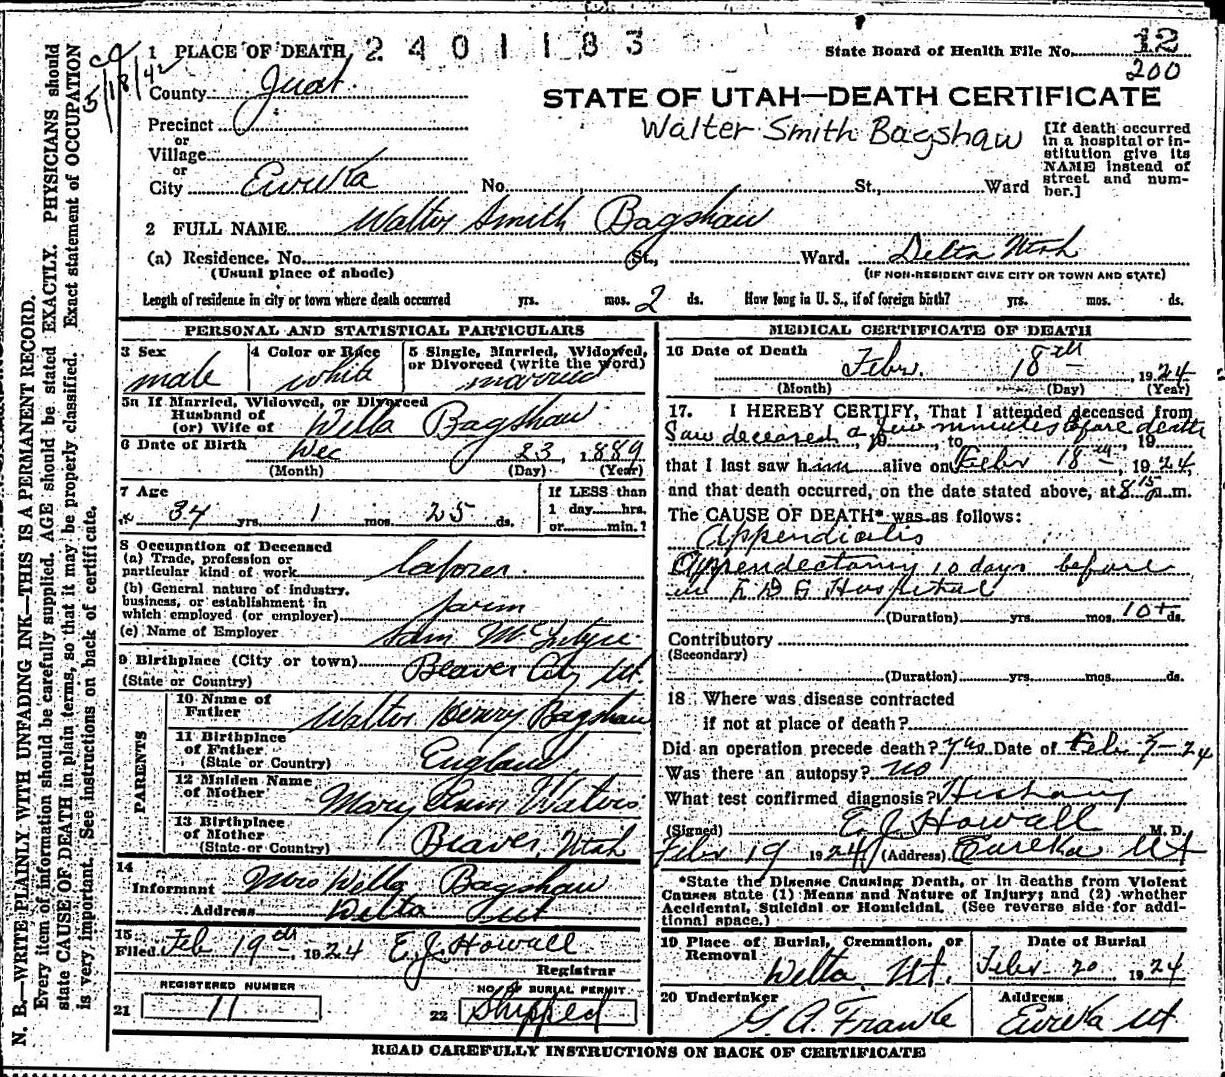 1 PLACE OF DEATH 2401183
State Board of Health File No. 12
200
5/18/42
County Juab
STATE OF UTAH—DEATH CERTIFICATE
Walter Smith Bagshaw
Precinct
or
Village
or
City Eureka No. St., Ward
[If death occurred
in a hospital or in-
stitution give its
NAME instead of
street and num-
ber.]
2 FULL NAME Walter Smith Bagshaw
(a) Residence. No. St., Ward. Delta Utah
(Usual place of abode) (IF NON-RESIDENT GIVE CITY OR TOWN AND STATE)
Length of residence in city or town where death occurred yrs. mos. 2 ds. How long in U. S., if of foreign birth? yrs. mos. ds.
PERSONAL AND STATISTICAL PARTICULARS
3 Sex
male
4 Color or Race
white
5 Single, Married, Widowed,
or Divorced (write the word)
married
5a If Married, Widowed, or Divorced
Husband of
(or) Wife of Della Bagshaw
6 Date of Birth Dec 23, 1889
(Month) (Day) (Year)
7 Age
34 yrs. 1 mos. 25 ds.
If LESS than
1 day hrs.
or min.?
8 Occupation of Deceased
(a) Trade, profession or
particular kind of work laborer.
(b) General nature of industry,
business, or establishment in
which employed (or employer) farm
(c) Name of Employer Sam McIntyre
9 Birthplace (City or town) Beaver City Ut
(State or Country)
PARENTS
10 Name of
Father Walter Henry Bagshaw
11 Birthplace
of Father
(State or Country) England
12 Maiden Name
of Mother Mary Ann Waters
13 Birthplace
of Mother
(State or Country) Beaver, Utah
14
Informant Mrs Della Bagshaw
Address Delta Ut
15
Filed Feb 19th, 1924 E. J. Howall
Registrar
REGISTERED NUMBER
21 11
NO. OF BURIAL PERMIT
22 Shipped
MEDICAL CERTIFICATE OF DEATH
16 Date of Death
Febr. 18th, 1924
(Month) (Day) (Year)
17. I HEREBY CERTIFY, That I attended deceased from
Saw deceased a few minutes before death, 19, to, 19
that I last saw him alive on Febr 18th, 1924,
and that death occurred, on the date stated above, at 8 15 m.
The CAUSE OF DEATH* was as follows:
Appendicitis
Appendectomy 10 days before
in Hospital
(Duration) yrs. mos. 10+ ds.
Contributory
(Secondary)
(Duration) yrs. mos. ds.
18 Where was disease contracted
if not at place of death?
Did an operation precede death? yes Date of Febr 24
Was there an autopsy? No
What test confirmed diagnosis? History
(Signed) E. J. Howall M. D.
Febr 19 1924 (Address) Eureka Ut
*State the Disease Causing Death, or in deaths from Violent
Causes state (1) Means and Nature of Injury; and (2) whether
Accidental, Suicidal or Homicidal. (See reverse side for addi-
tional space.)
19 Place of Burial, Cremation, or
Removal
Delta, Ut.
Date of Burial
Febr 20 1924
20 Undertaker
G A. Franke
Address
Eureka Ut.
READ CAREFULLY INSTRUCTIONS ON BACK OF CERTIFICATE
N. B.—WRITE PLAINLY WITH UNFADING INK—THIS IS A PERMANENT RECORD.
Every item of information should be carefully supplied. AGE should be stated EXACTLY. PHYSICIANS should
state CAUSE OF DEATH in plain terms, so that it may be properly classified. Exact statement of OCCUPATION
is very important. See instructions on back of certificate.